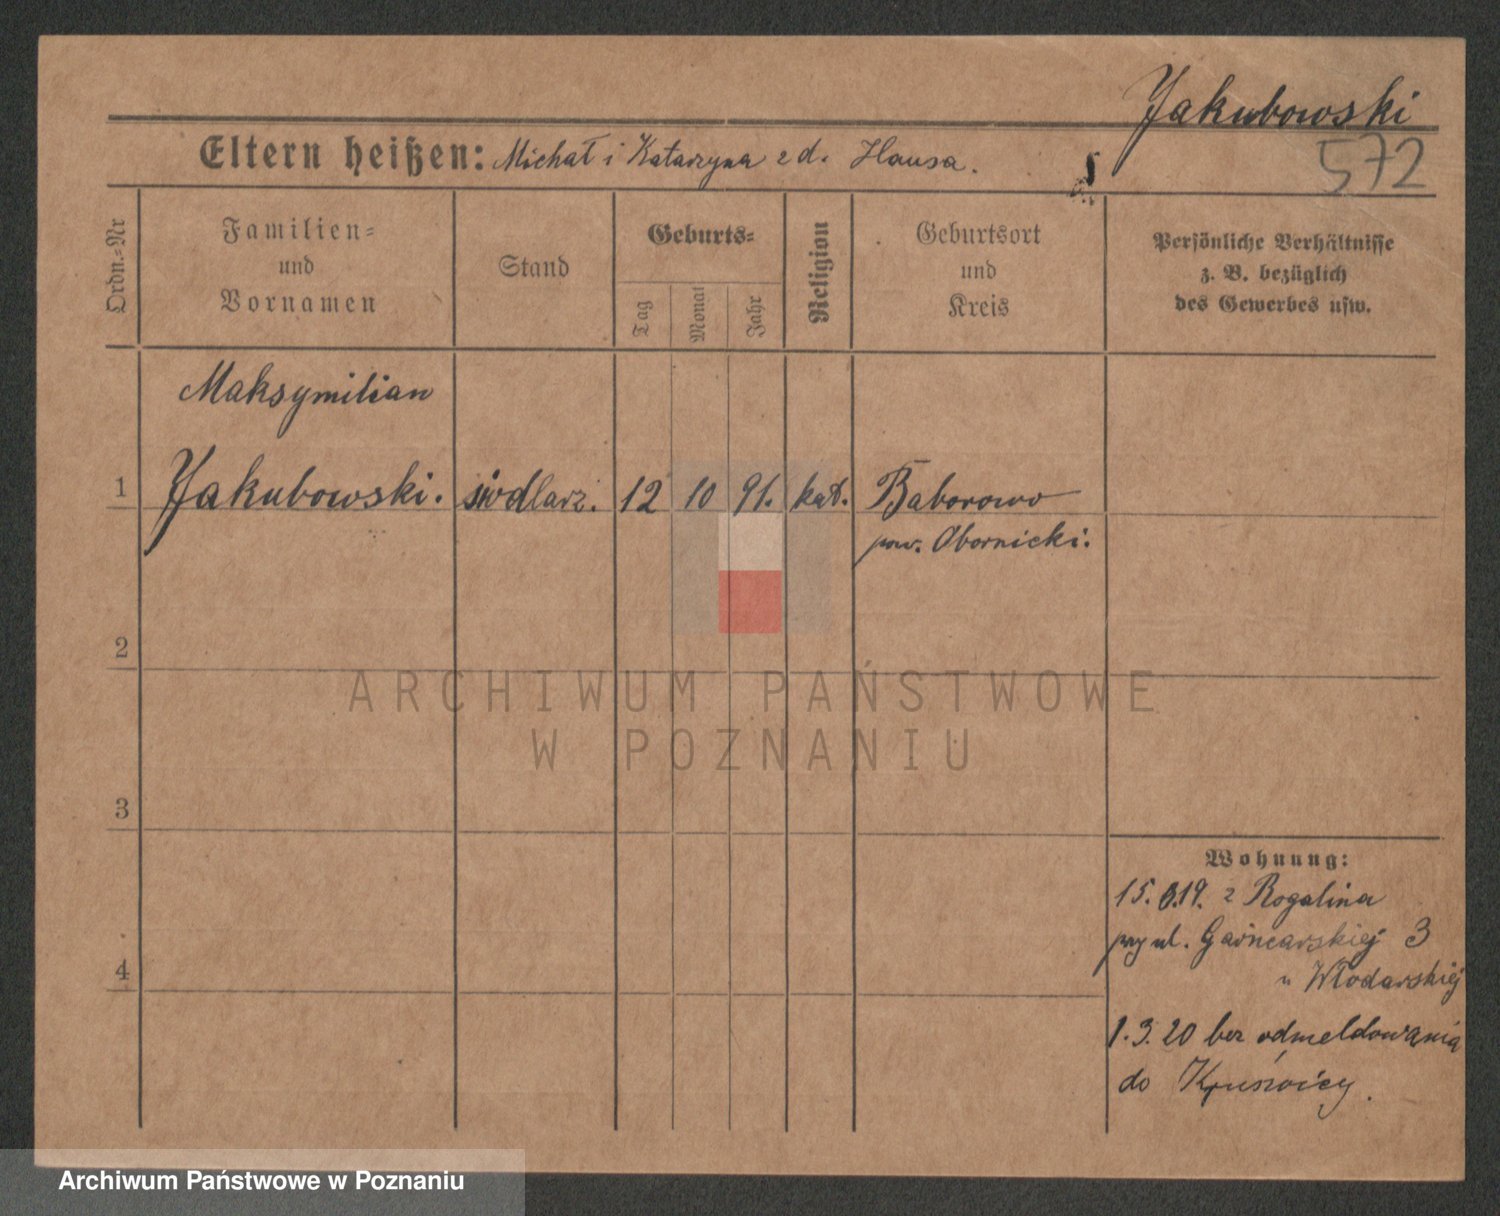 Jakubowski
572
Eltern heißen: Michał i Katarzyna z d. Hausa.
Ordn.=Nr
Familien=
und
Vornamen
Stand
Geburts=
Tag
Monat
Jahr
Religion
Geburtsort
und
Kreis
Persönliche Verhältnisse
z. B. bezüglich
des Gewerbes usw.
Maksymilian
1 Jakubowski. siodlarz. 12 10 91. kat. Baborowo
pow. Obornicki.
2
3
4
Wohnung:
15. 19. z Rogalina
przy ul. Garncarskiej 3
u Włodarskiej
1.3.20 bez odmeldowania
do Kruświcy.
ARCHIWUM PAŃSTWOWE
W POZNANIU
Archiwum Państwowe w Poznaniu